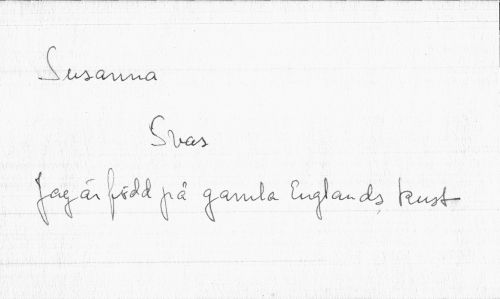 Susanna
Svas
Jag är född på gamla Englands kust